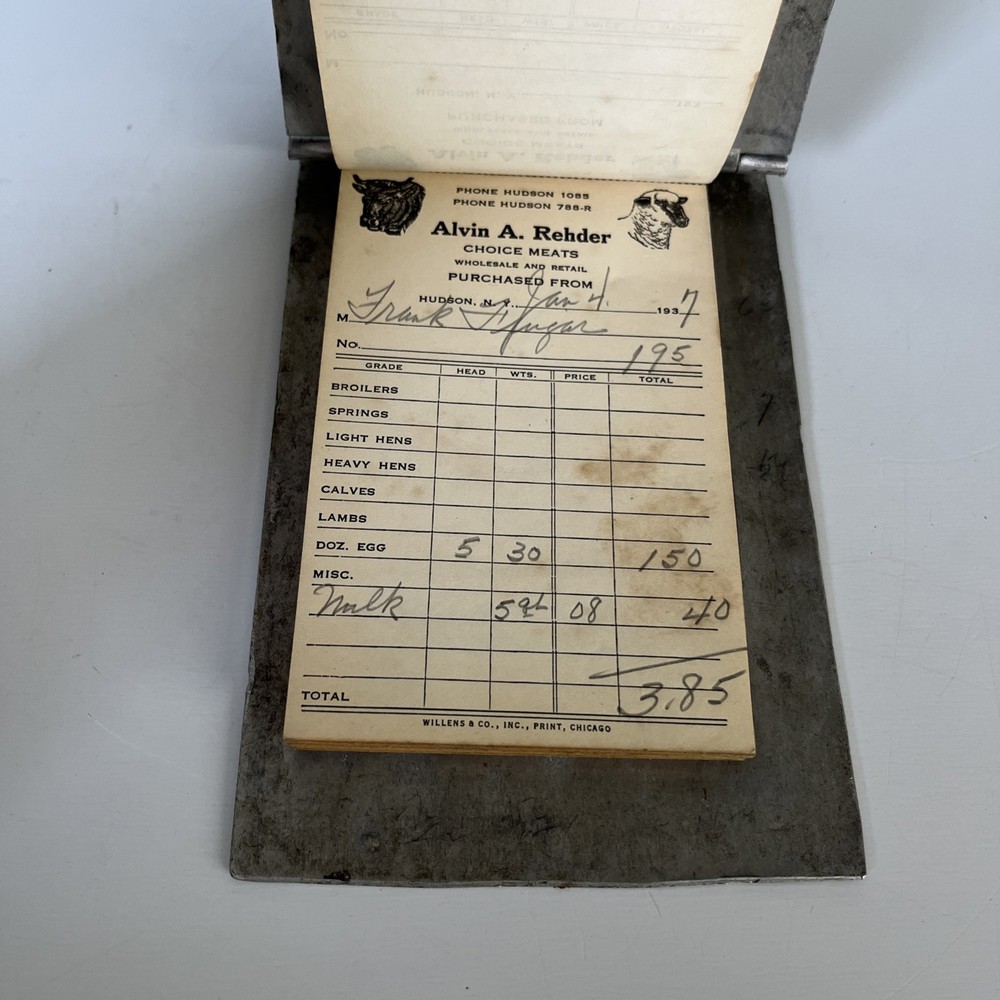 PHONE HUDSON 1085
PHONE HUDSON 788-R
Alvin A. Rehder
CHOICE MEATS
WHOLESALE AND RETAIL
PURCHASED FROM
HUDSON, N. Y. Jan 4. 1937
M Frank
No. 195
GRADE HEAD WTS. PRICE TOTAL
BROILERS
SPRINGS
LIGHT HENS
HEAVY HENS
CALVES
LAMBS
DOZ. EGG 5 30 150
MISC.
Milk 5 qt 08 40
TOTAL 3.85
WILLENS & CO., INC., PRINT, CHICAGO